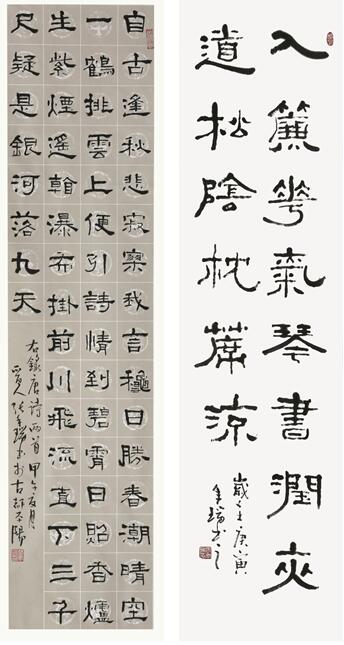 自古逢秋悲寂寥我言穐日勝春潮晴空
一鶴排雲上便引詩情到碧霄日照香爐
生紫煙遥看瀑布掛前川飛流直下三千
尺疑是銀河落九天
右錄唐詩兩首甲午夏月
入簾華氣琴書潤夾
道松陰枕蓆涼
庚寅